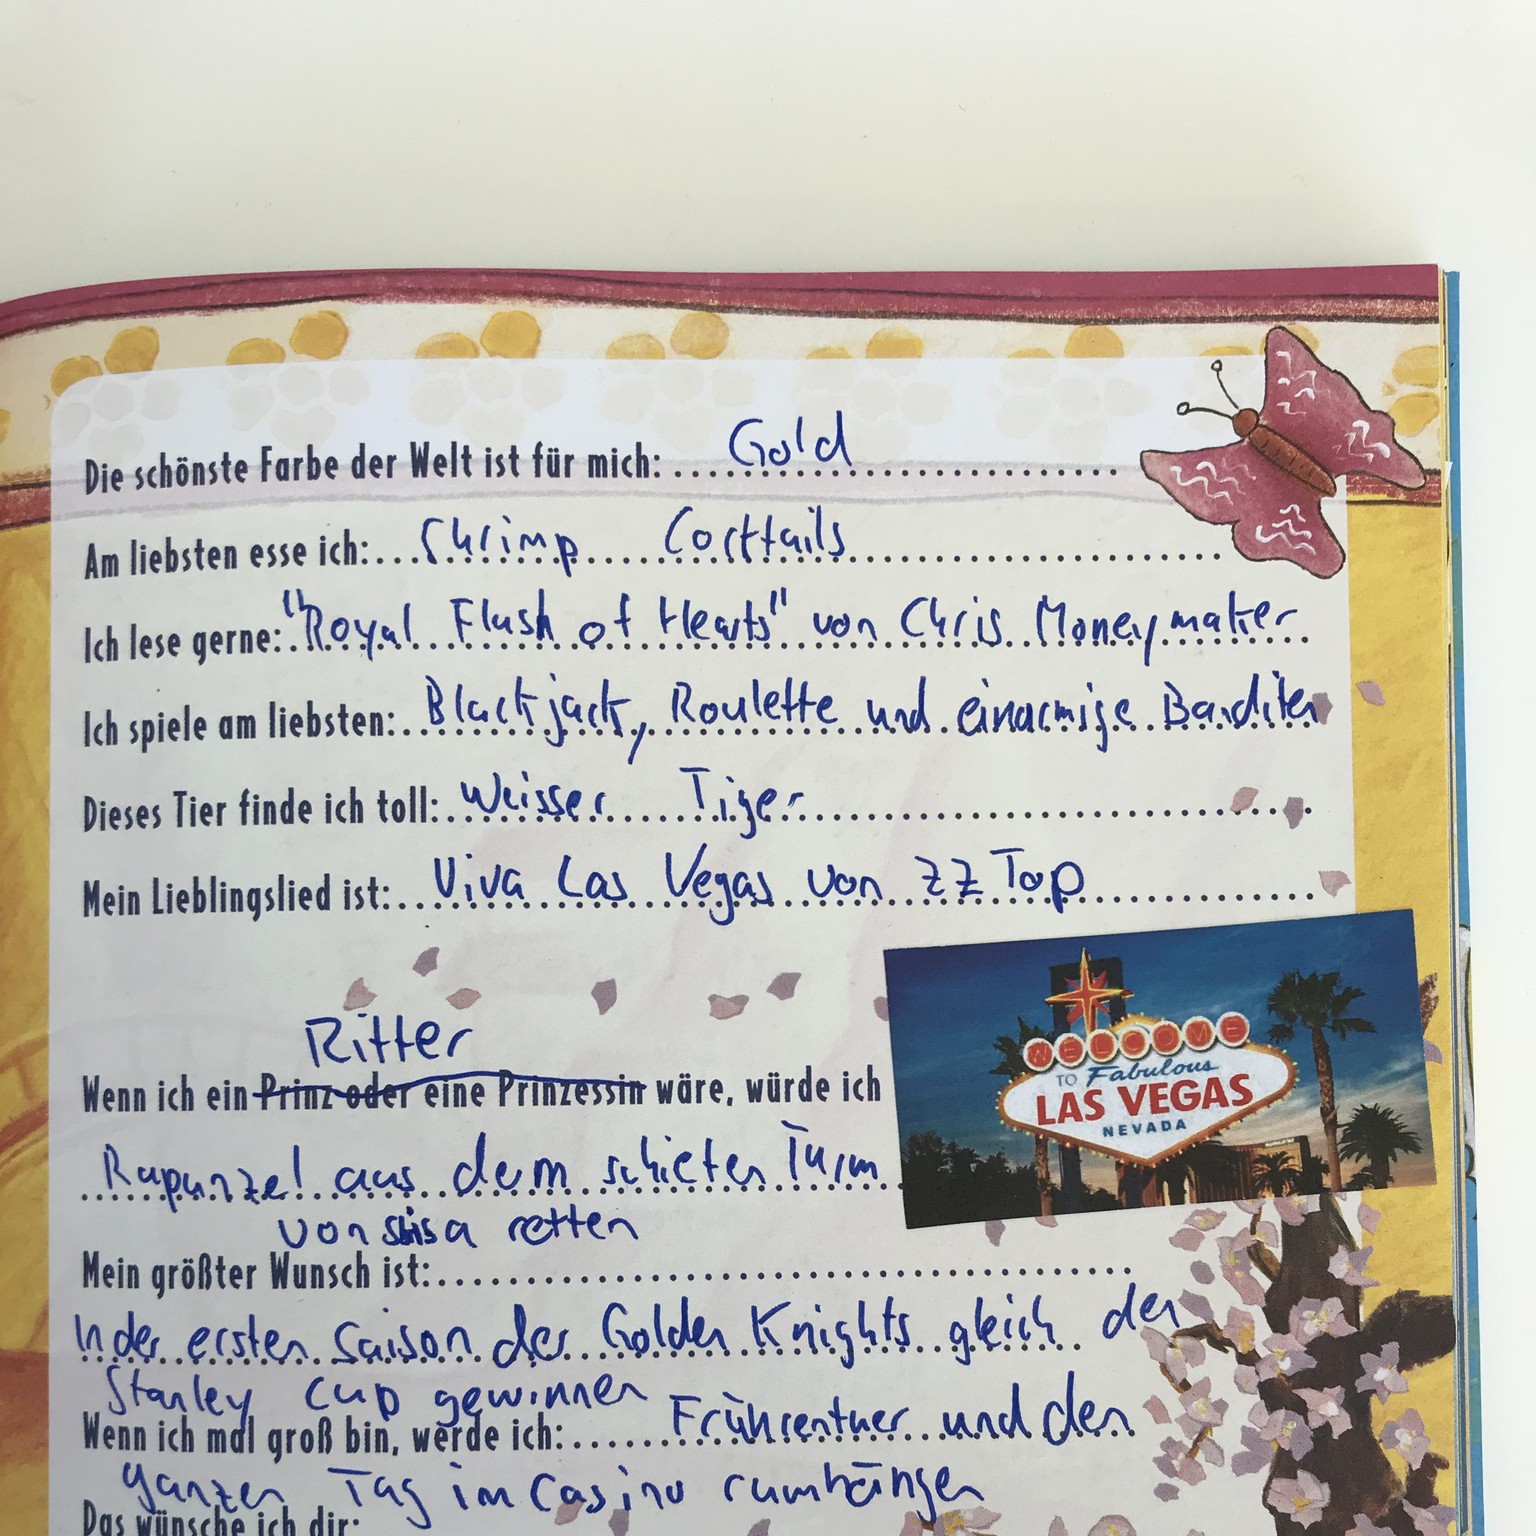 Die schönste Farbe der Welt ist für mich: Gold
Am liebsten esse ich: Shrimp Cocktails
Ich lese gerne: "Royal Flush of Hearts" von Chris Moneymaker
Ich spiele am liebsten: Blackjack, Roulette und einarmige Banditen
Dieses Tier finde ich toll: Weisser Tiger
Mein Lieblingslied ist: Viva Las Vegas von ZZ Top
Ritter
Wenn ich ein Prinz oder eine Prinzessin wäre, würde ich
Rapunzel aus dem schiefen Turm
von retten
WELCOME
TO Fabulous
LAS VEGAS
NEVADA
Mein größter Wunsch ist:
In der ersten Saison der Golden Knights gleich den
Stanley Cup gewinnen
Wenn ich mal groß bin, werde ich: Frührentner und den
ganzen Tag im Casino rumhängen
Das wünsche ich dir: